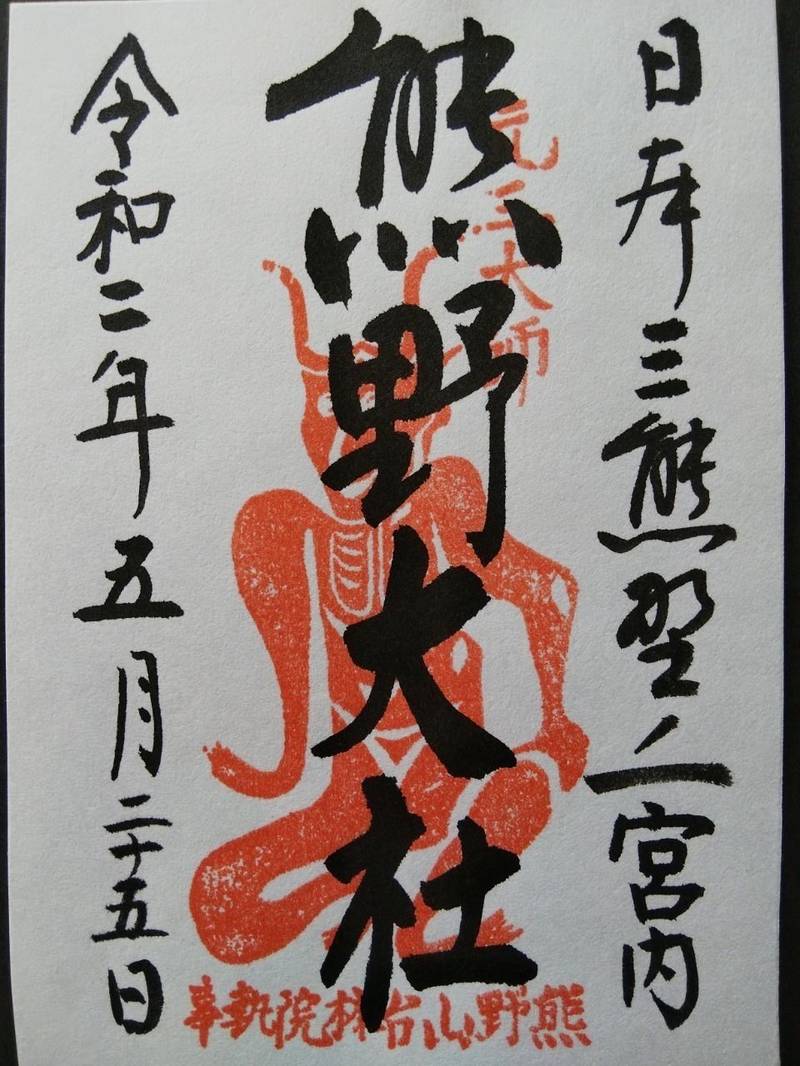 日本三熊野ノ一宮内
熊野大社
元三大師
令和二年五月二十五日
熊野山台林院執事